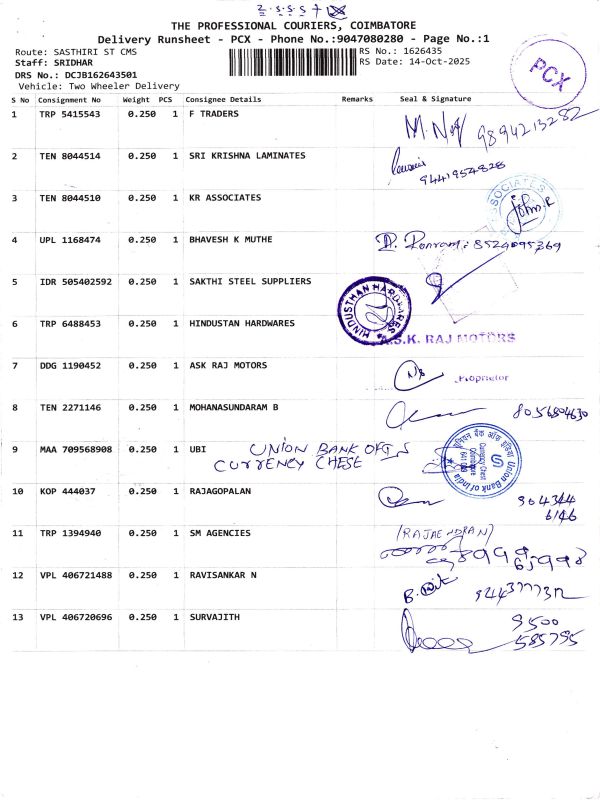 THE PROFESSIONAL COURIERS, COIMBATORE
Delivery Runsheet - PCX - Phone No.:9047080280 - Page No.:1
Route: SASTHIRI ST CMS
RS No.: 1626435
Staff: SRIDHAR
RS Date: 14-Oct-2025
DRS No.: DCJB162643501
Vehicle: Two Wheeler Delivery
PCX
S No Consignment No Weight PCS Consignee Details Remarks Seal & Signature
1 TRP 5415543 0.250 1 F TRADERS
9894213282
2 TEN 8044514 0.250 1 SRI KRISHNA LAMINATES
9441954828
3 TEN 8044510 0.250 1 KR ASSOCIATES
4 UPL 1168474 0.250 1 BHAVESH K MUTHE
8524095369
5 IDR 505402592 0.250 1 SAKTHI STEEL SUPPLIERS
HINDUSTHAN HARDWARES
6 TRP 6488453 0.250 1 HINDUSTAN HARDWARES
A.S.K. RAJ MOTORS
7 DDG 1190452 0.250 1 ASK RAJ MOTORS
Proprietor
8 TEN 2271146 0.250 1 MOHANASUNDARAM B
8056804630
9 MAA 709568908 0.250 1 UBI UNION BANK OF
CURRENCY CHESE
Union Bank of India
Currency Chest
Coimbatore
10 KOP 444037 0.250 1 RAJAGOPALAN
904344
6146
11 TRP 1394940 0.250 1 SM AGENCIES
(RAJAENDRAN)
12 VPL 406721488 0.250 1 RAVISANKAR N
13 VPL 406720696 0.250 1 SURVAJITH
9500
585795